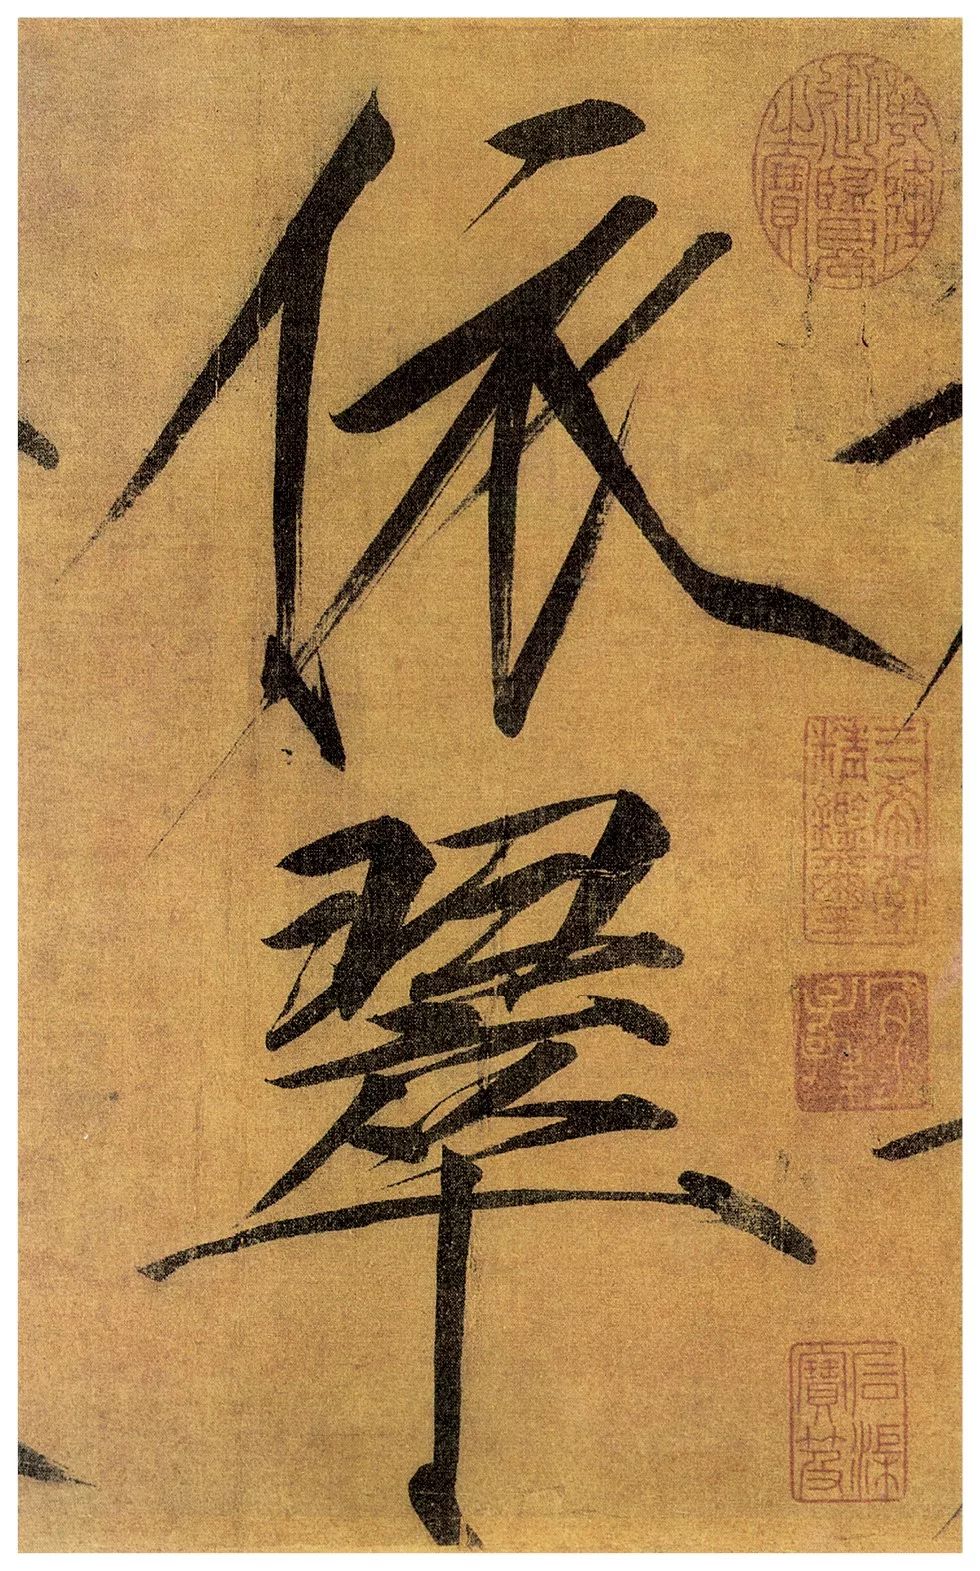 依翠
乾隆御覽之寶
三希堂精鑑璽
宜子孫
石渠寶笈